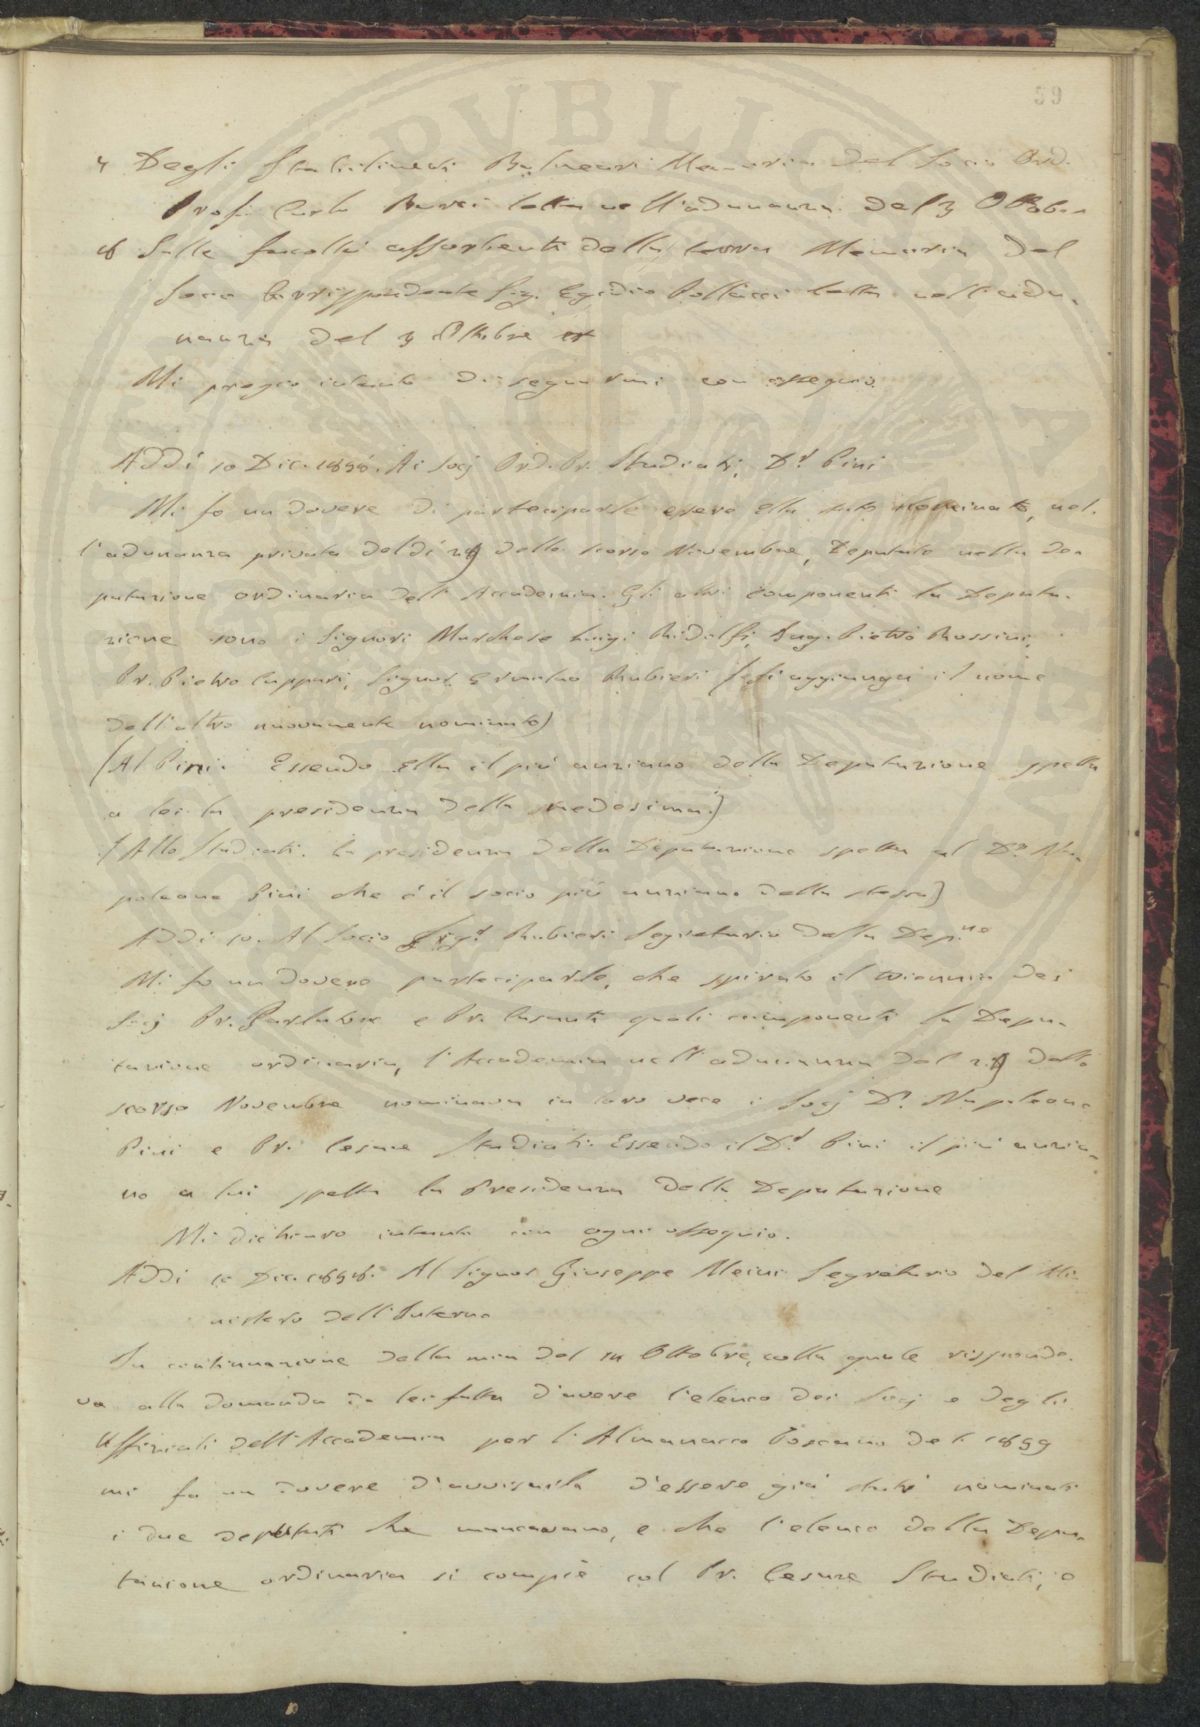 59
7 Degli Stabilimenti Balneari Memoria del Socio Ord.
Prof. Carlo Burci letta nell'adunanza del 3 Ottobre
8 Sulle facoltà assorbenti della terra Memoria del
Socio Corrispondente Sig. Egidio Pollacci letta nell'adu-
nanza del 3 Ottobre
Mi pregio intanto di segnarmi con ossequio
Addì 10 Dic. 1858. Ai Socj Ord. Pr. Studiati, Dr. Pini
Mi fo un dovere di parteciparle essere Ella stato nominato, nel-
l'adunanza privata del dì 28 dello scorso Novembre, Deputato nella De-
putazione ordinaria dell'Accademia. Gli altri componenti la Deputa-
zione sono i Signori Marchese Luigi Ridolfi, Ing. Pietro Rossini,
Pr. Pietro Cuppari, Signor Ermolao Rubieri (si aggiunga il nome
dell'altro nuovamente nominato)
(Al Pini. Essendo Ella il più anziano della Deputazione spetta
a lei la presidenza della medesima.)
(Allo Studiati. La presidenza della Deputazione spetta al Dr. Na-
poleone Pini che è il socio più anziano della stessa)
Addì 10. Al Socio Sigr. Rubieri Segretario della Depne
Mi fo un dovere parteciparle, che spirato il biennio dei
Socj Pr. Parlatore e Pr. Casanti quali componenti la Depu-
tazione ordinaria, l'Accademia nell'adunanza del 28 dello
scorso Novembre nominava in loro vece i Socj Dr. Napoleone
Pini e Pr. Cesare Studiati. Essendo il Dr. Pini il più anzia-
no a lui spetta la Presidenza della Deputazione
Mi dichiaro intanto con ogni ossequio.
Addì 10 Dic. 1858. Al Signor Giuseppe Meini Segretario del Mi-
nistero dell'Interno
In continuazione della mia del 14 Ottobre, colla quale risponde-
va alla domanda da lei fatta d'avere l'elenco dei Socj e degli
Uffiziali dell'Accademia per l'Almanacco Toscano del 1859
mi fo un dovere d'avvisarla d'essere già stati nominati
i due deputati che mancavano, e che l'elenco della Depu-
tazione ordinaria si compie col Pr. Cesare Studiati, e